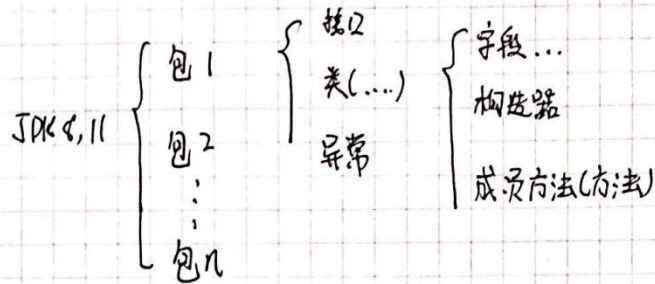 JDK 8,11
包1
包2
⋮
包n
接口
类(....)
异常
字段...
构造器
成员方法(方法)